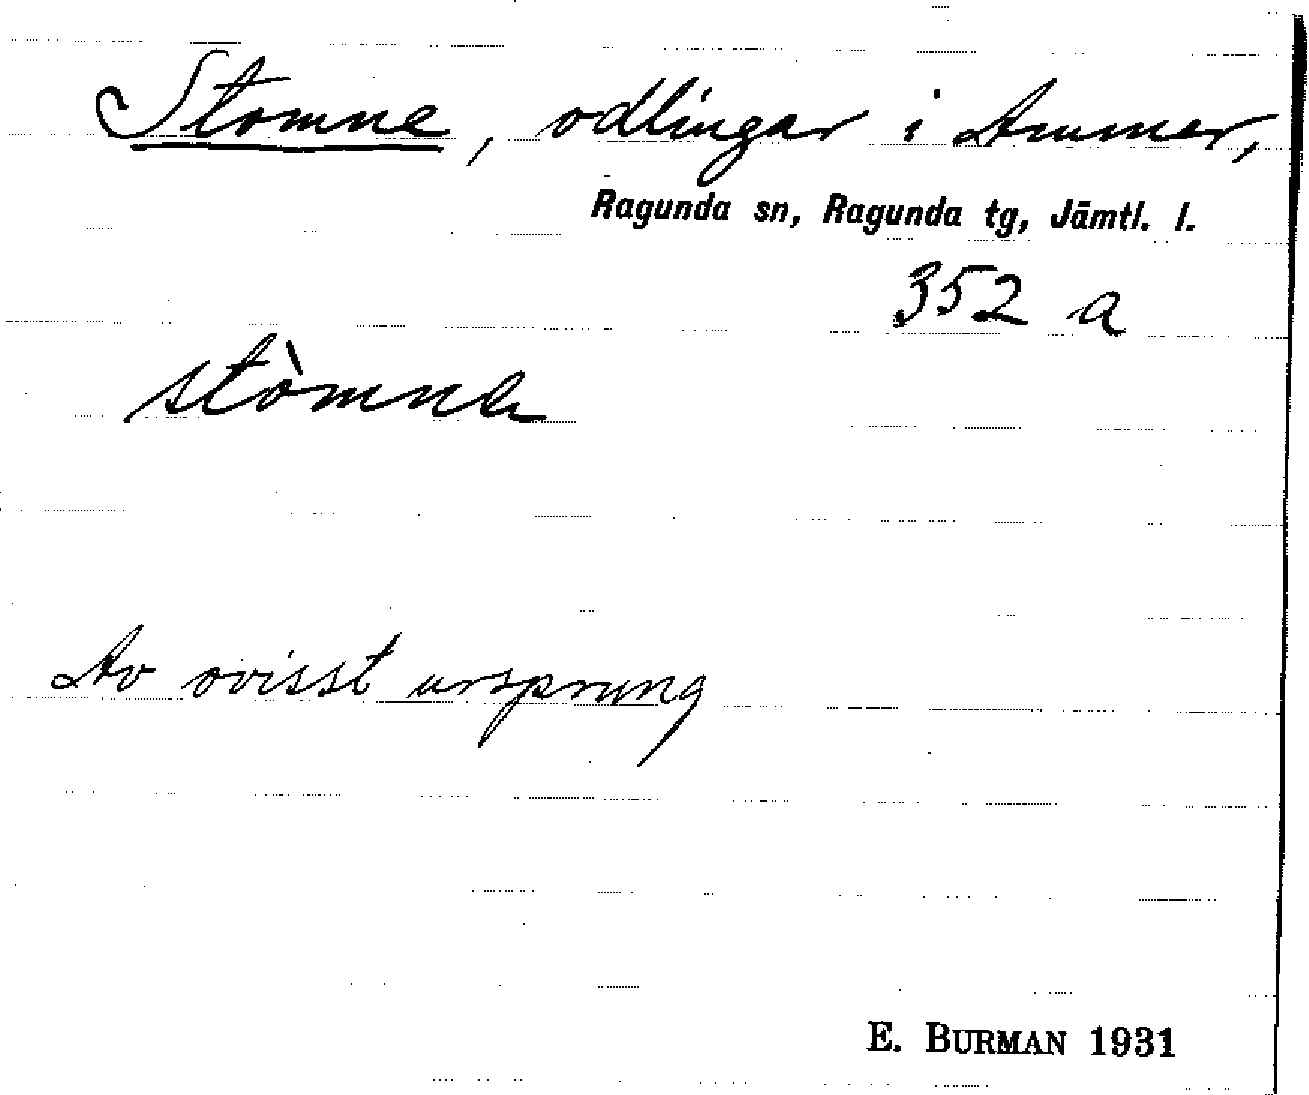 Stomne, odlingar i Ammer,
Ragunda sn, Ragunda tg, Jämtl. l.
352 a
stòmna
Av ovisst ursprung
E. BURMAN 1931